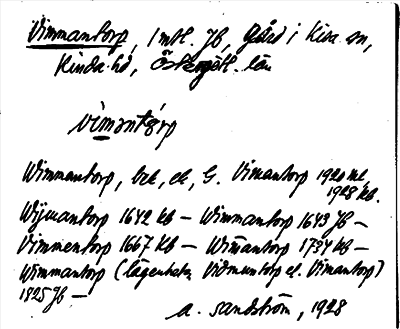 Vimmantorp, 1 mtl. Jb, Gård i Kisa sn,
Kinda hd, Östergötl. län
vimantårp
Wimmantorp, bel, el, G. Vimantorp 1920 ml,
1928 kb.
Wijmantorp 1642 kb – Wimmantorp 1643 Jb –
Vimmentorp 1667 Kb – Wimantorp 1734 kb –
Wimmantorp (lägenheten Vidmuntorp el. Vimantorp)
1825 Jb –
A. Sandström, 1928